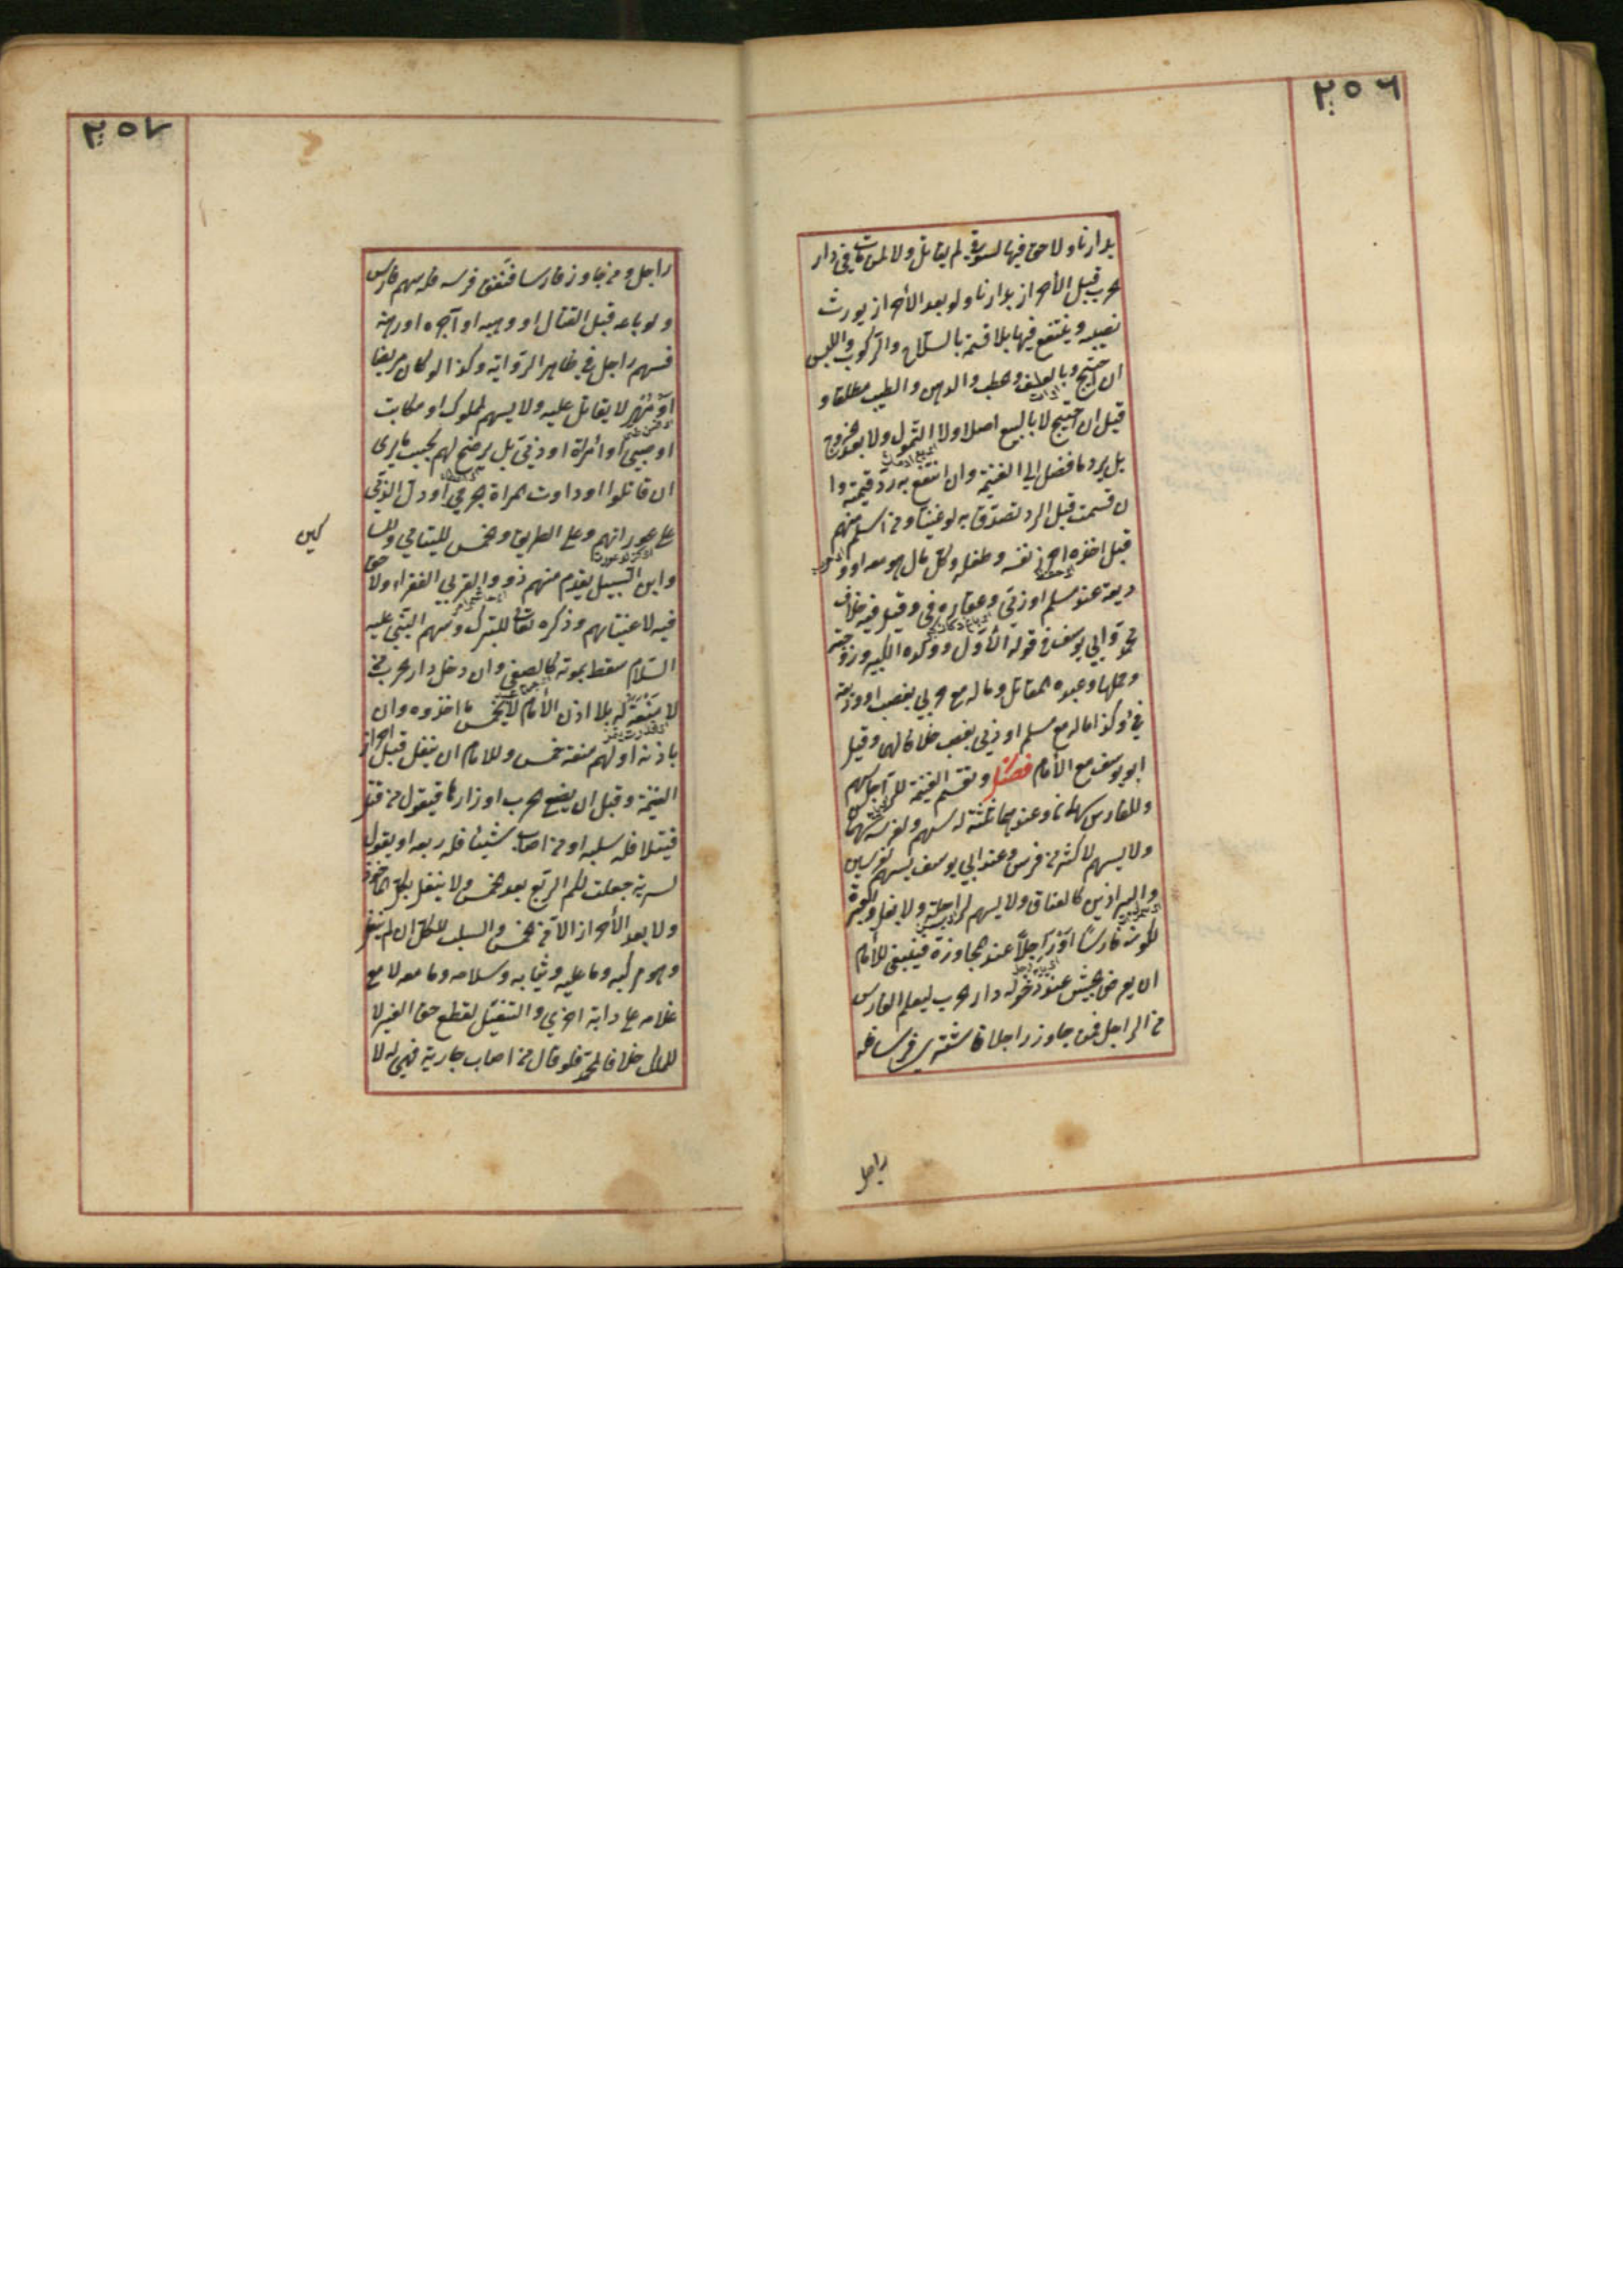 ٢٥٦
بدارنا ولا حق فيها لسوقى لم يقاتل ولا لمن مات فى دار
الحرب قبل الأحراز بدارنا ولو بعد الأحراز يورث
نصيبه وينتفع فيها بلا قسمة بالسلاح والركوب واللبس
ان احتيج وبالعلف والحطب والدهن والطيب مطلقا و
قيل ان احتيج لا بالبيع اصلا ولا التمول ولا بعد الخروج
بل يرد ما فضل الى الغنيمة وان انتفع به رد قيمته وا
ن قسمت قبل الرد تصدق به لو غنيا ومن اسلم منهم
قبل اخذه احرز نفسه وطفله وكل مال هو معه او و
ديعة عند مسلم او ذمى وعقاره فئ وقيل فيه خلاف
محمد وابى يوسف فى قوله الأول وولده الكبير وزوجته
وحملها وعبده المقاتل وماله مع حربى بغصب او وديعة
فئ وكذا ماله مع مسلم او ذمى بغصب خلافا لهما وقيل
ابو يوسف مع الأمام فصل وتقسم الغنيمة للراجل سهم
وللفارس سهمان وعندهما ثلثة له سهم ولفرسه سهمان
ولا يسهم لاكثر من فرس وعند ابى يوسف يسهم لفرسين
والبراذين كالعتاق ولا يسهم لراحلة ولا بغل والعبرة
لكونه فارسا او راجلا عند المجاوزة فينبغى للأمام
ان يعرض الجيش عند دخوله دار الحرب ليعلم الفارس
من الراجل فمن جاوز راجلا فاشترى فرسا فله
راجل
٢٥٧
راجل ومن جاوز فارسا فنفق فرسه فله سهم فارس
ولو باعه قبل القتال او وهبه او آجره او رهنه
فسهم راجل فى ظاهر الرواية وكذا لو كان مريضا
او مهرا لا يقاتل عليه ولا يسهم لمملوك او مكاتب
او صبى او امرأة او ذمى بل يرضخ لهم بحسب ما يرى
ان قاتلوا او داوت المراة الجرحى او دل الذمى
على عوراتهم وعلى الطريق والخمس لليتامى والمسا
كين
وابن السبيل يقدم منهم ذووا القربى الفقراء ولا حق
فيه لاغنيائهم وذكره تعالى للتبرك وسهم النبى عليه
السلام سقط بموته كالصفى وان دخل دار الحرب من
لا منعة له بلا اذن الأمام لا يخمس ما اخذوه وان
باذنه او لهم منعة خمس وللامام ان ينفل قبل احراز
الغنيمة وقبل ان يضع الحرب اوزارها فيقول من قتل
قتيلا فله سلبه او من اصاب شيئا فله ربعه او يقول
لسرية جعلت لكم الربع بعد الخمس ولا ينفل بكل المأخوذ
ولا بعد الأحراز الا من الخمس والسلب للكل ان لم ينفل
وهو مركبه وما عليه وثيابه وسلاحه وما معه لا مع
غلامه على دابة اخرى والتنفيل لقطع حق الغير لا
للملك خلافا لمحمد فلو قال من اصاب جارية فهى له لا